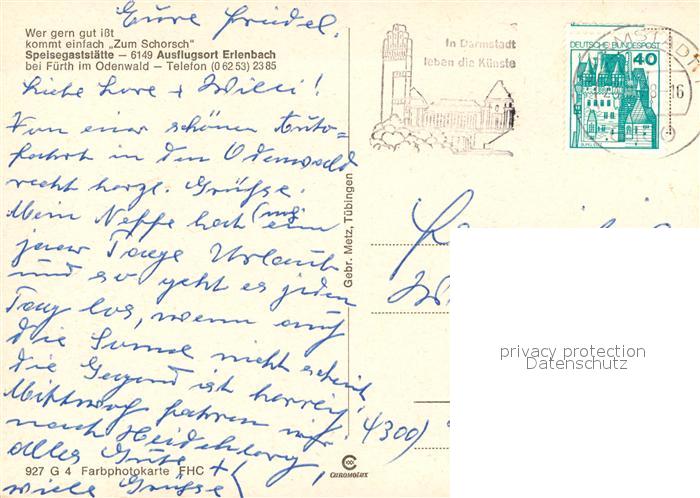 Eure Friedel.
Wer gern gut ißt
kommt einfach „Zum Schorsch"
Speisegaststätte – 6149 Ausflugsort Erlenbach
bei Fürth im Odenwald – Telefon (0 62 53) 23 85
Liebe Lore + Willi!
Von einer schönen Auto=
fahrt in den Odenwald
recht herzl. Grüsse.
Mein Neffe hat ein
paar Tage Urlaub
und so geht es jeden
Tag los, wenn auch
die Sonne nicht scheint
die Gegend ist herrlich
Mittwoch fahren wir
nach Heidelberg,
alles Gute +
viele Grüsse
927 G 4 Farbphotokarte FHC
Gebr. Metz, Tübingen
CHROMOLUX
In Darmstadt
leben die Künste
DEUTSCHE BUNDESPOST
40
DARMSTADT
16
4300)
privacy protection
Datenschutz